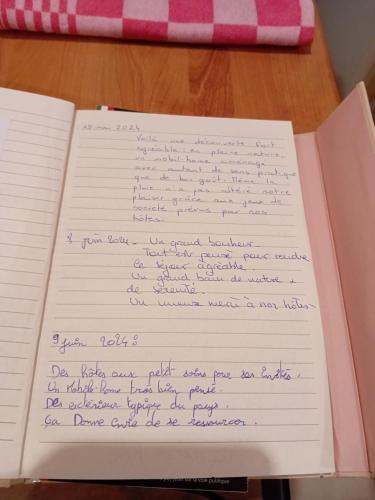 28 mai 2024
Voilà une découverte fort
agréable : en pleine nature,
un mobil-home aménagé
avec autant de sens pratique
que de bon goût. Même la
pluie n'a pas altéré notre
plaisir grâce aux jeux de
société prévus par nos
hôtes.
8 juin 2024. Un grand bonheur.
Tout est pensé pour rendre
ce séjour agréable
Un grand bain de nature &
de sérénité.
Un immense merci à nos hôtes
9 juin 2024 :
Des hôtes aux petit soins pour ses invités,
Un Mobile-home très bien pensé.
Des extérieur typique du pays.
ça Donne envie de se ressourcer.
sur la voie publique